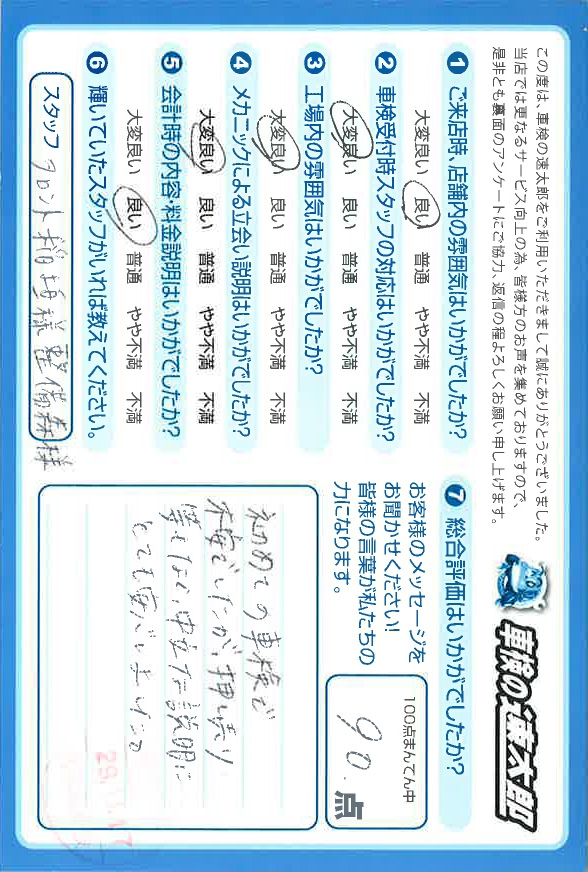 この度は、車検の速太郎をご利用いただきまして誠にありがとうございました。
当店では更なるサービス向上の為、皆様方のお声を集めておりますので、
是非とも裏面のアンケートにご協力、返信の程よろしくお願い申し上げます。
車検の速太郎
1 ご来店時、店舗内の雰囲気はいかがでしたか?
大変良い 良い 普通 やや不満 不満
2 車検受付時スタッフの対応はいかがでしたか?
大変良い 良い 普通 やや不満 不満
3 工場内の雰囲気はいかがでしたか?
大変良い 良い 普通 やや不満 不満
4 メカニックによる立会い説明はいかがでしたか?
大変良い 良い 普通 やや不満 不満
5 会計時の内容・料金説明はいかがでしたか?
大変良い 良い 普通 やや不満 不満
6 輝いていたスタッフがいれば教えてください。
スタッフ フロント 様 整備 森様
7 総合評価はいかがでしたか?
100点まんてん中
90.点
お客様のメッセージを
お聞かせください!
皆様の言葉が私たちの
力になります。
初めての車検で
不安でしたが、押し売り
等もなく、中立な説明に
とても
29.